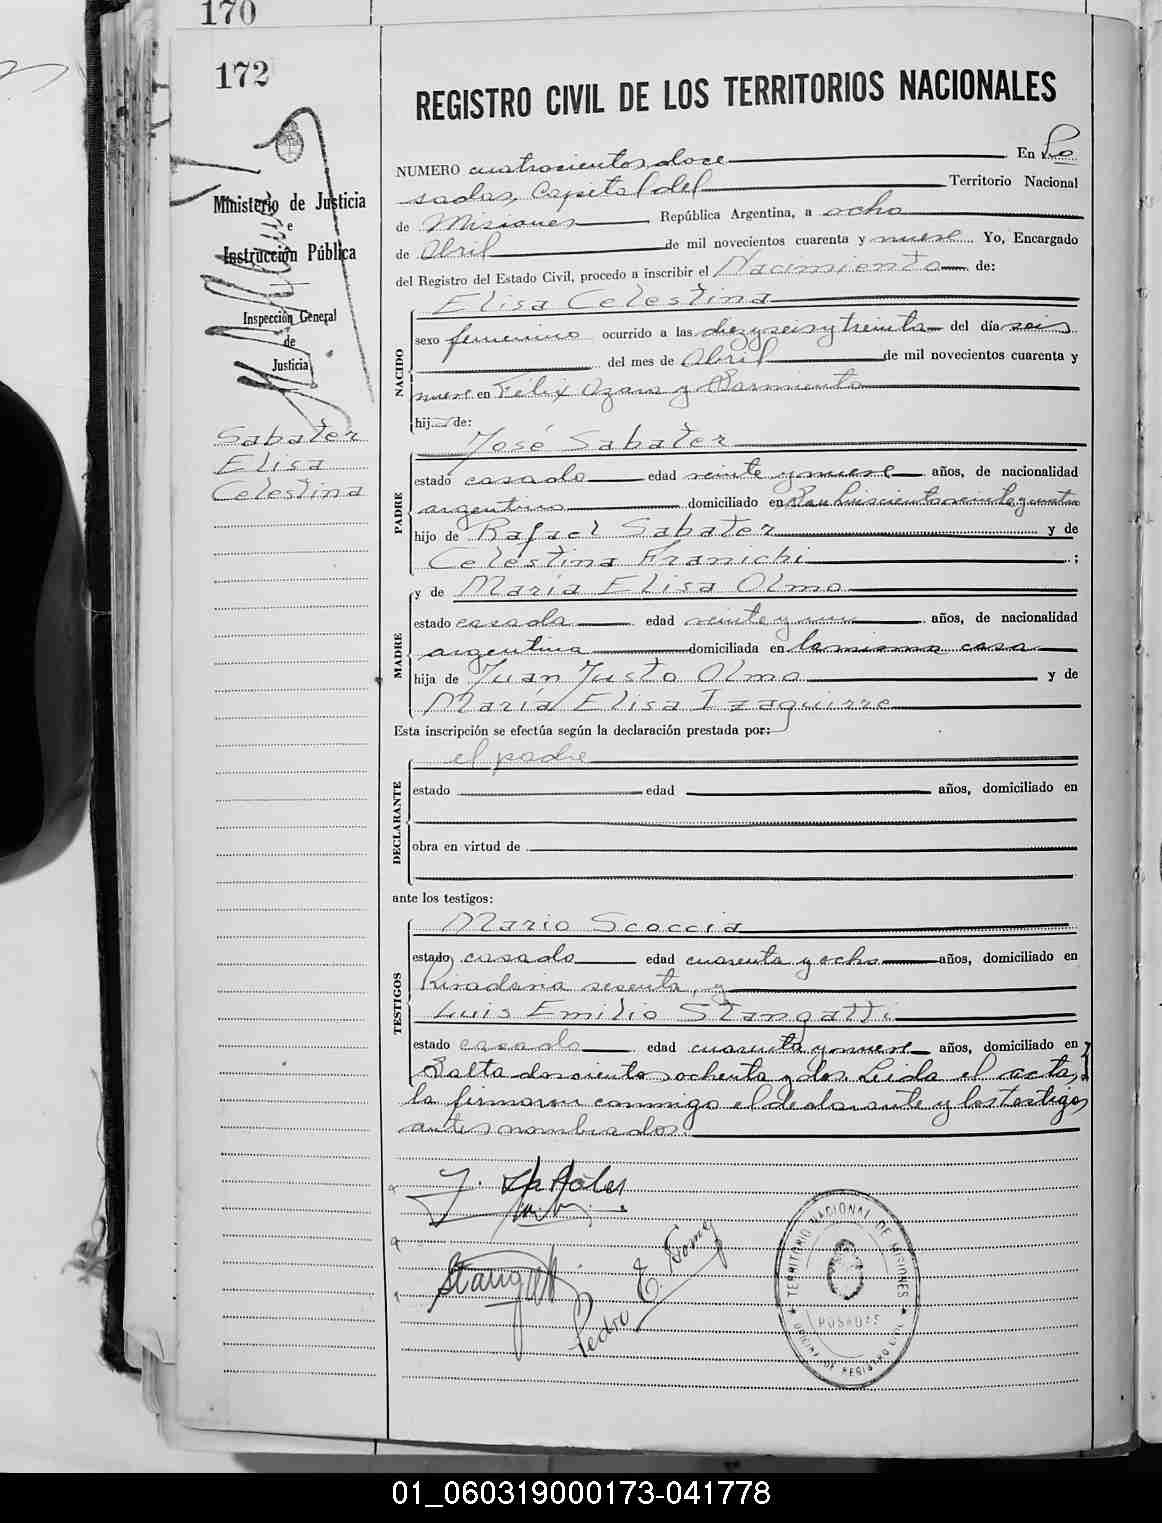 170
172
REGISTRO CIVIL DE LOS TERRITORIOS NACIONALES
Ministerio de Justicia
e
Instrucción Pública
Inspección General
de
Justicia
Sabater
Elisa
Celestina
NUMERO cuatrocientos doce En Po
sadas, Capital del Territorio Nacional
de Misiones República Argentina, a ocho
de Abril de mil novecientos cuarenta y nueve Yo, Encargado
del Registro del Estado Civil, procedo a inscribir el Nacimiento de:
NACIDO
Elisa Celestina
sexo femenino ocurrido a las diez y seis y treinta del día seis
del mes de Abril de mil novecientos cuarenta y
nueve en Félix Azara y Sarmiento
hij de:
PADRE
José Sabater
estado casado edad veinte y nueve años, de nacionalidad
argentino domiciliado en
hijo de Rafael Sabater y de
Celestina Franichi ;
MADRE
y de María Elisa Olmo
estado casada edad veinte y años, de nacionalidad
argentina domiciliada en la misma casa
hija de Juan Justo Olmo y de
María Elisa Izaguirre
Esta inscripción se efectúa según la declaración prestada por:
DECLARANTE
el padre
estado edad años, domiciliado en
obra en virtud de
ante los testigos:
TESTIGOS
Mario Scoccia
estado casado edad cuarenta y ocho años, domiciliado en
Rivadavia sesenta, y
Luis Emilio Stangatti
estado casado edad cuarenta y nueve años, domiciliado en
Salta doscientos ochenta y dos Leida el acta,
la firmaron conmigo el declarante y los testigos
antes nombrados.
Stangatti
Pedro E. Gomez
TERRITORIO NACIONAL DE MISIONES
POSADAS
OFICINA DE REGISTRO CIVIL
01_060319000173-041778